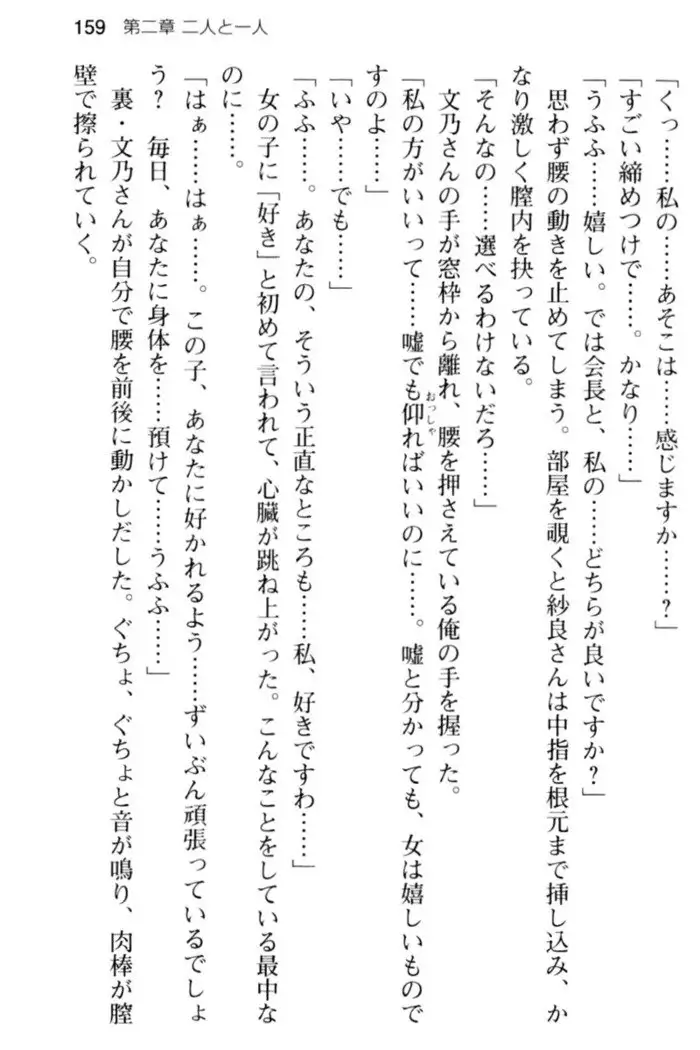 159 第二章 二人と一人
「くっ……私の……あそこは……感じますか……？」
「すごい締めつけで……。かなり……」
「うふふ……嬉しい。では会長と、私の……どちらが良いですか？」
思わず腰の動きを止めてしまう。部屋を覗くと紗良さんは中指を根元まで挿し込み、か
なり激しく膣内を抉っている。
「そんなの……選べるわけないだろ……」
文乃さんの手が窓枠から離れ、腰を押さえている俺の手を握った。
「私の方がいいって……嘘でも仰おっしゃればいいのに……。嘘と分かっても、女は嬉しいもので
すのよ……」
「いや……でも……」
「ふふ……。あなたの、そういう正直なところも……私、好きですわ……」
女の子に「好き」と初めて言われて、心臓が跳ね上がった。こんなことをしている最中な
のに……。
「はぁ……はぁ……。この子、あなたに好かれるよう……ずいぶん頑張っているでしょ
う？　毎日、あなたに身体を……預けて……うふふ……」
裏・文乃さんが自分で腰を前後に動かしだした。ぐちょ、ぐちょと音が鳴り、肉棒が膣
壁で擦られていく。